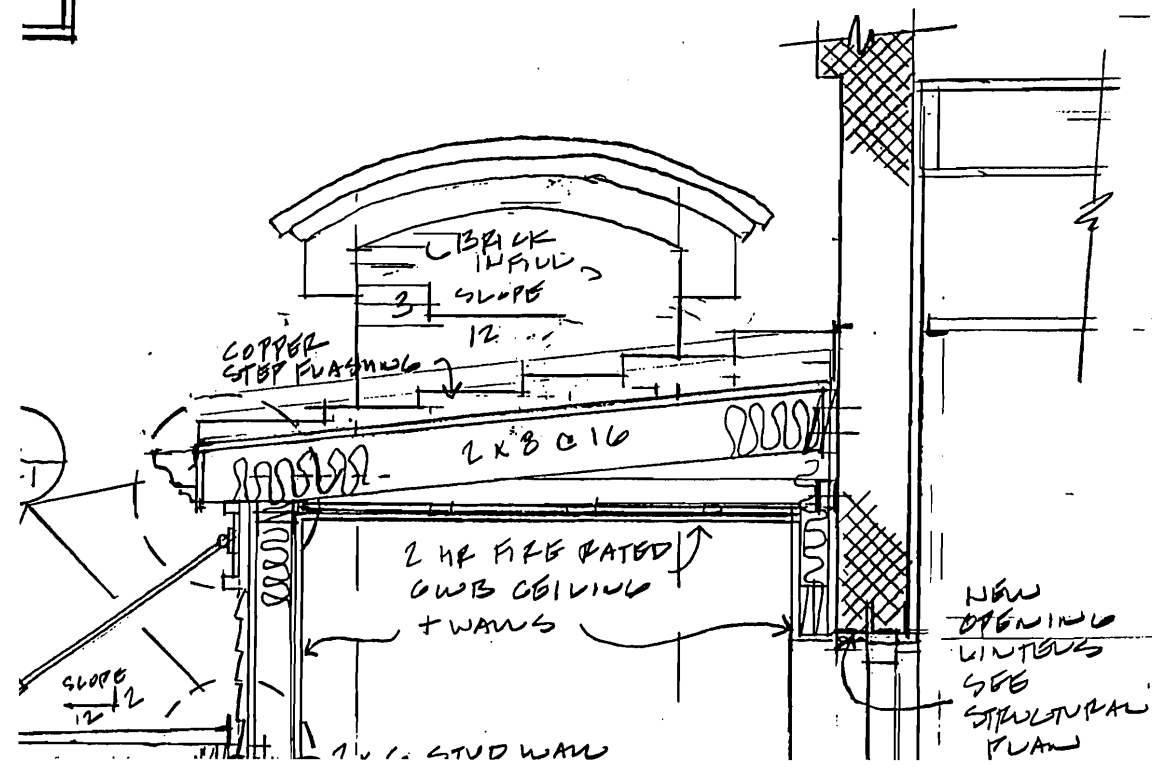 BRICK
INFILL
SLOPE
3
12
COPPER
STEP FLASHING
2 x 8 @ 16
2 HR FIRE RATED
GWB CEILING
+ WALLS
NEW
OPENING
LINTELS
SEE
STRUCTURAL
PLAN
SLOPE
2
12
1
STUD WALL